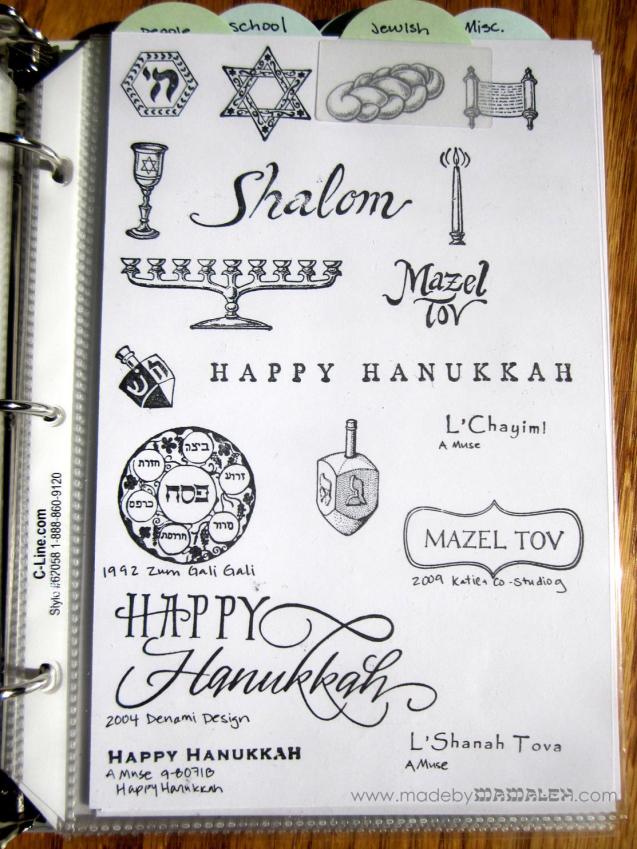 people
school
Jewish
Misc.
חי
Shalom
Mazel
Tov
HAPPY HANUKKAH
ש
ה
L'Chayim!
A Muse
ביצה
חזרת
זרוע
פסח
כרפס
מרור
חרוסת
ג
MAZEL TOV
1992 Zum Gali Gali
2009 Katie + Co - Studio g
HAPPY
Hanukkah
2004 Denami Design
HAPPY HANUKKAH
A Muse 9-8071B
Happy Hanukkah
L'Shanah Tova
A Muse
C-Line.com
Style #62058 1-888-860-9120
www.madebymamaleh.com